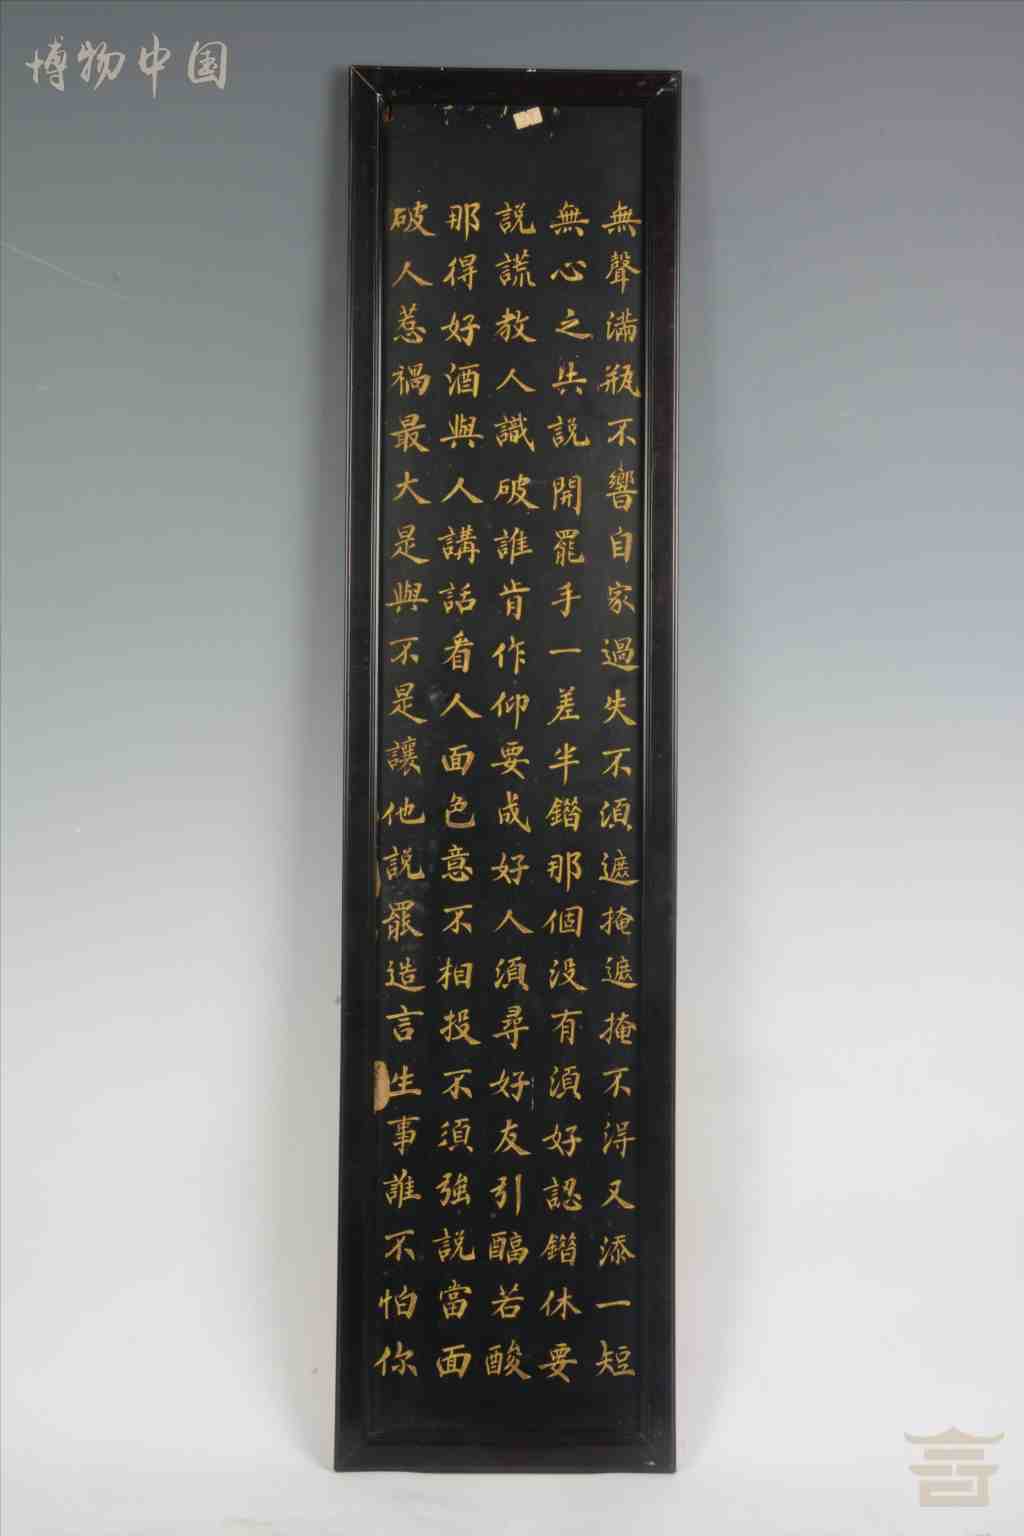 博物中国
無聲滿瓶不響自家過失不須遮掩遮掩不得又添一短
無心之失說開罷手一差半錯那個沒有須好認錯休要
說謊教人識破誰肯作仰要成好人須尋好友引若酸
那得好酒與人講話看人面色意不相投不須強說當面
破人惹禍最大是與不是讓他說罷造言生事誰不怕你